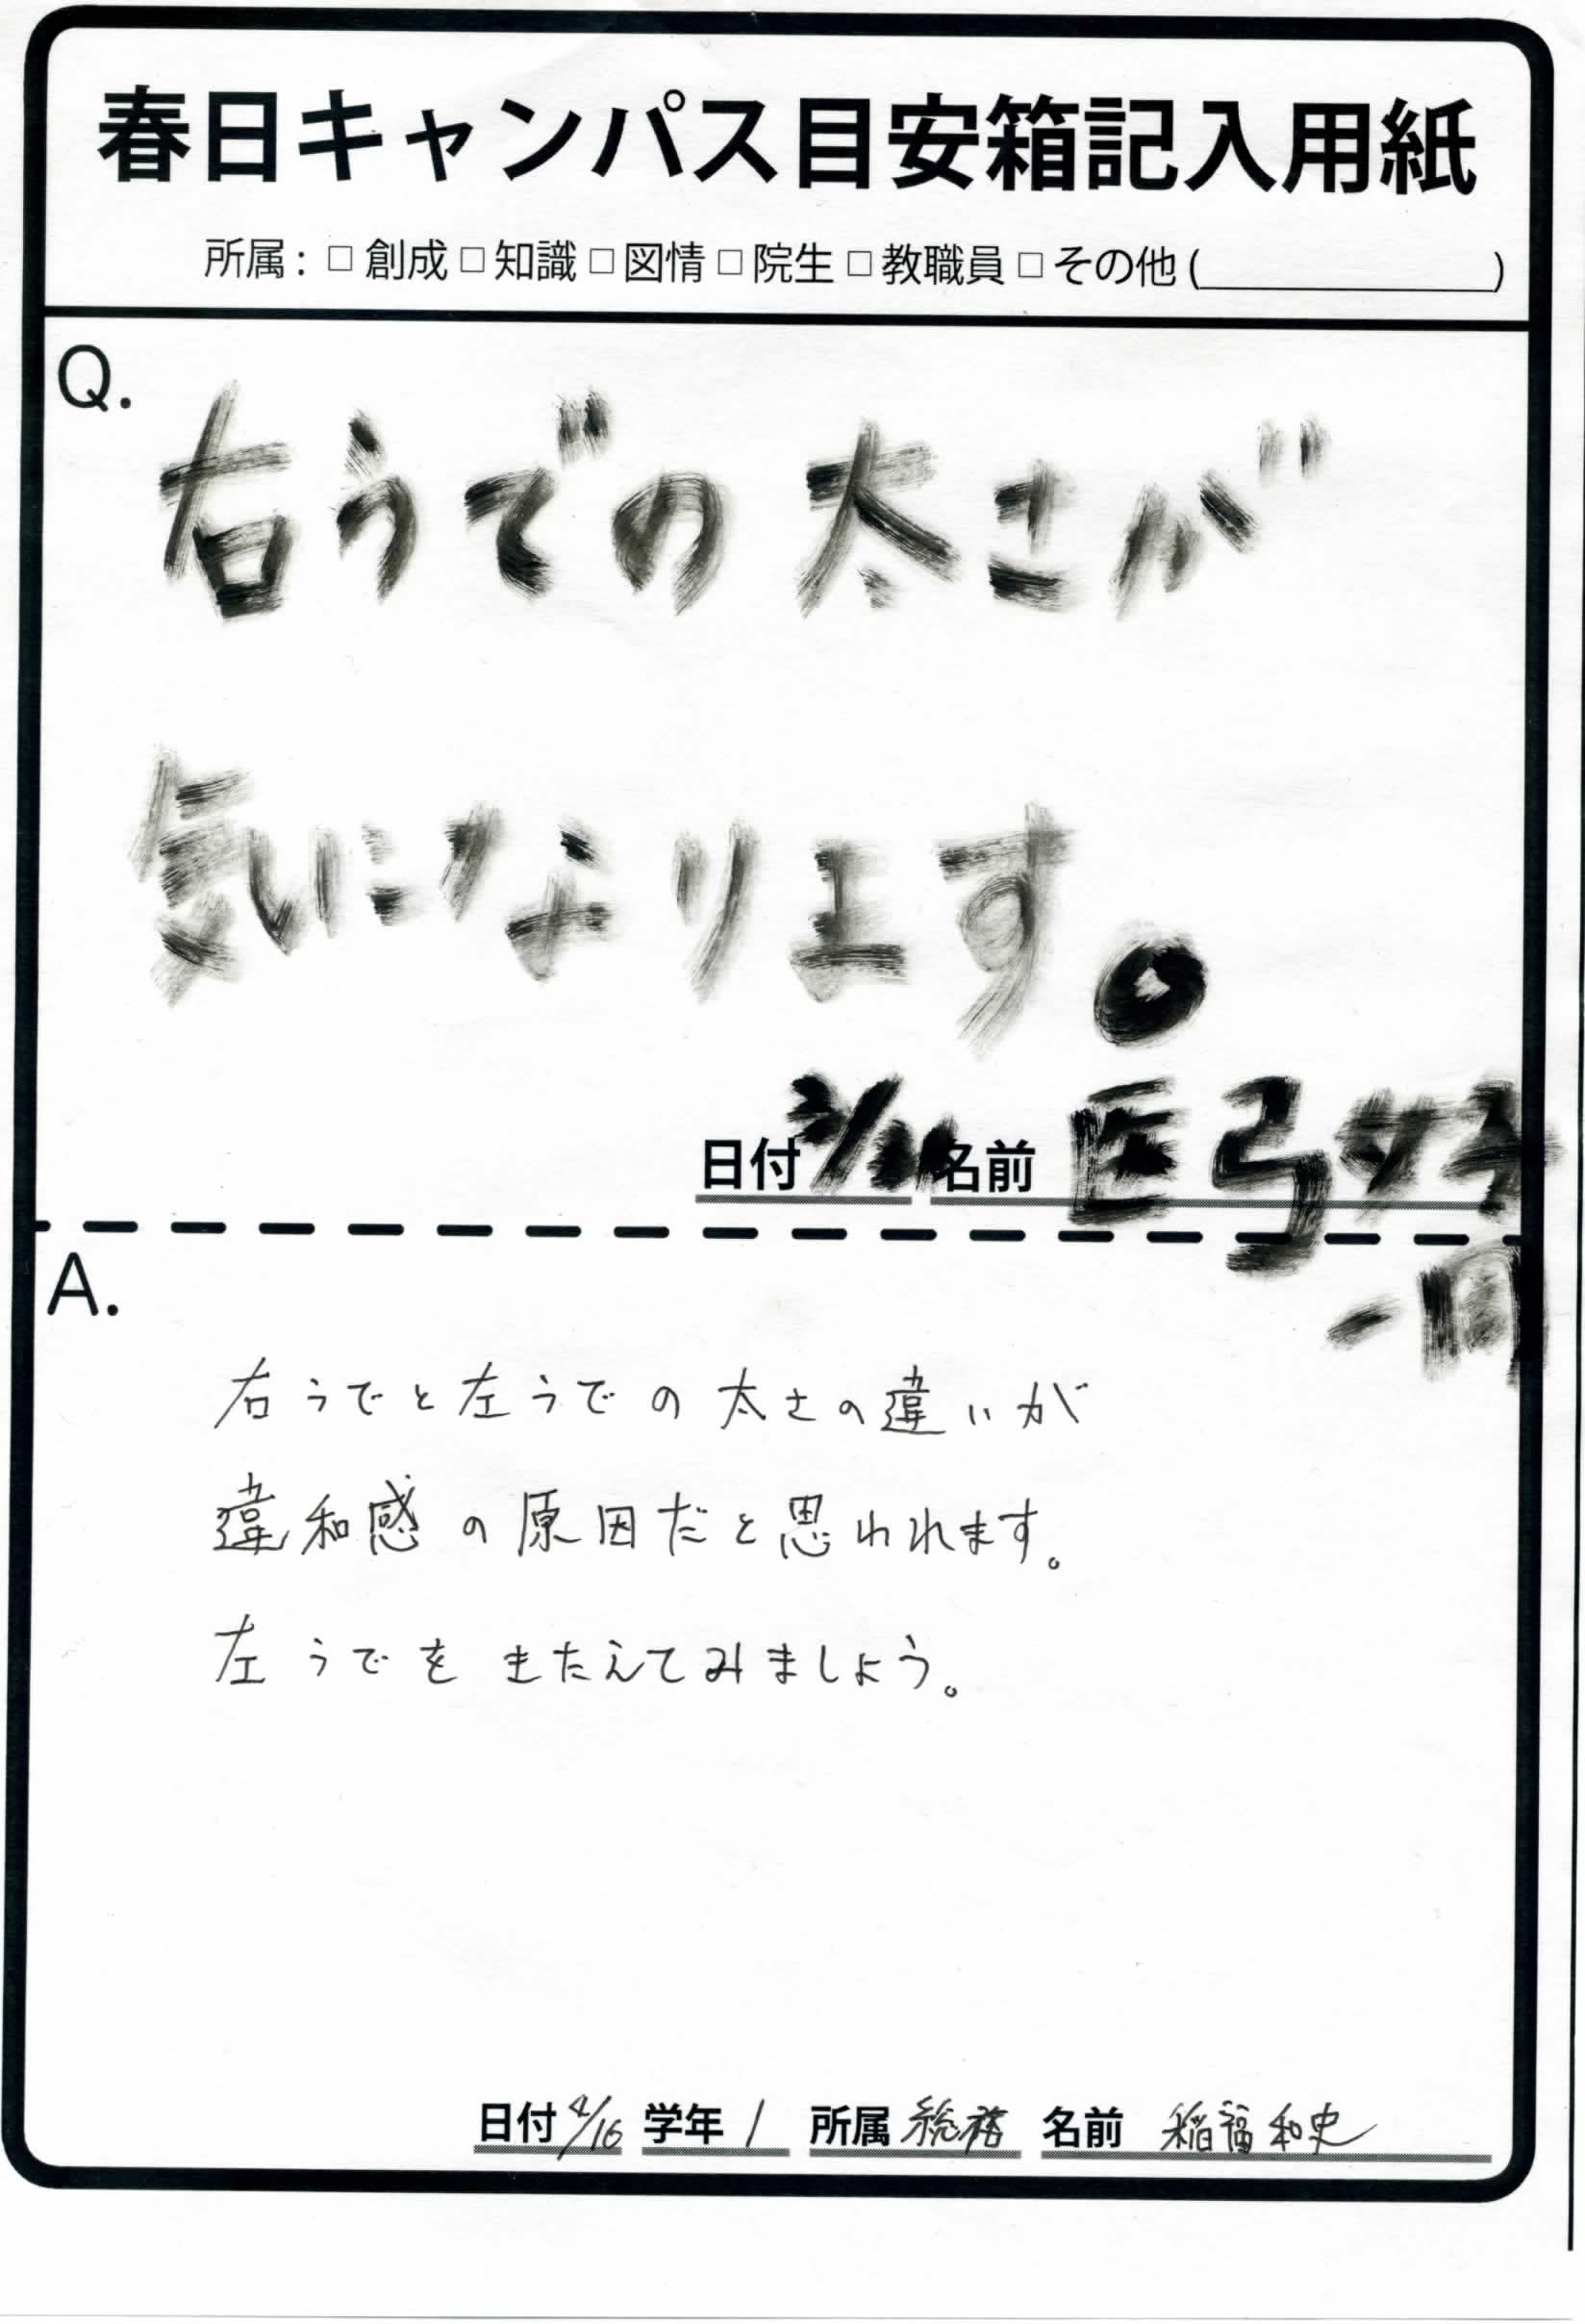 春日キャンパス目安箱記入用紙
所属：□ 創成 □ 知識 □ 図情 □ 院生 □ 教職員 □ その他 (　　　)
Q.
右うでの太さが
気になります。
日付 名前 医弓女子
一同
A.
右うでと左うでの太さの違いが
違和感の原因だと思われます。
左うでをきたえてみましょう。
日付 4/16 学年 1 所属 総務 名前 稲福和史